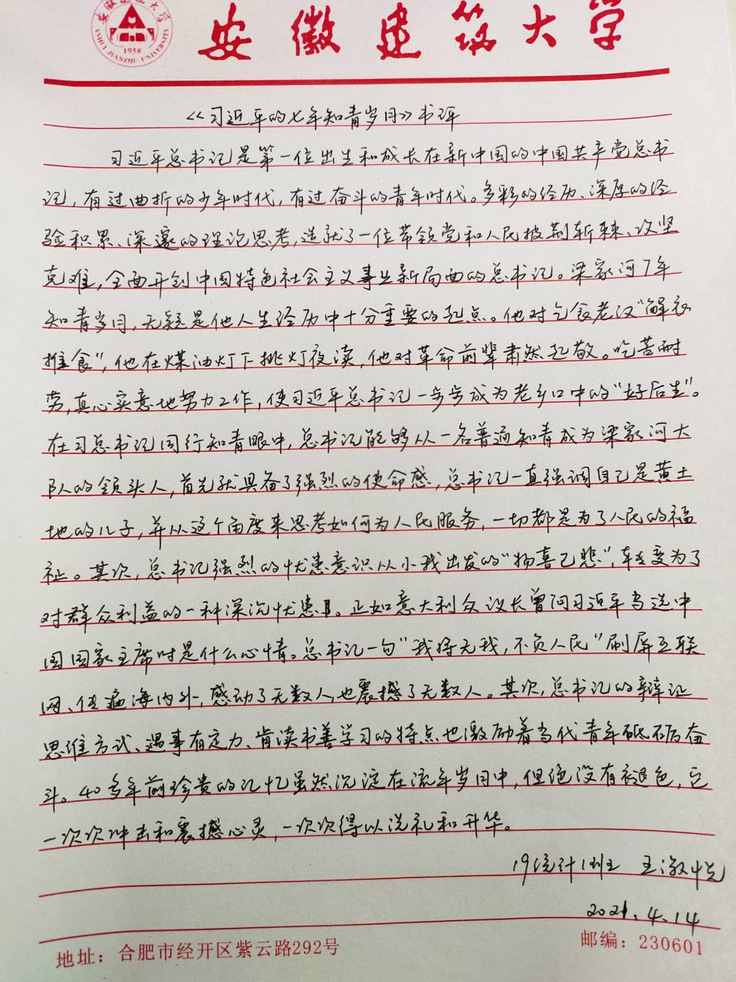 安徽建筑大学
1958
ANHUI JIANZHU UNIVERSITY
安徽建筑大学
《习近平的七年知青岁月》书评
习近平总书记是第一位出生和成长在新中国的中国共产党总书
记，有过曲折的少年时代，有过奋斗的青年时代。多彩的经历、深厚的经
验积累、深邃的理论思考，造就了一位带领党和人民披荆斩棘、攻坚
克难，全面开创中国特色社会主义事业新局面的总书记。梁家河7年
知青岁月，无疑是他人生经历中十分重要的起点。他对乞食老汉“解衣
推食”，他在煤油灯下挑灯夜读，他对革命前辈肃然起敬。吃苦耐
劳，真心实意地努力工作，使习近平总书记一步步成为老乡口中的“好后生”。
在习总书记同行知青眼中，总书记能够从一名普通知青成为梁家河大
队的领头人，首先就具备了强烈的使命感，总书记一直强调自己是黄土
地的儿子，并从这个角度来思考如何为人民服务，一切都是为了人民的福
祉。其次，总书记强烈的忧患意识从小我出发的“物喜己悲”，转变为了
对群众利益的一种深沉忧患。正如意大利众议长曾问习近平当选中
国国家主席时是什么心情。总书记一句“我将无我，不负人民”刷屏互联
网、传遍海内外，感动了无数人也震撼了无数人。其次，总书记的辩证
思维方式、遇事有定力、肯读书善学习的特点也激励着当代青年砥砺奋
斗。40多年前珍贵的记忆虽然沉淀在流年岁月中，但绝没有褪色，它
一次次冲击和震撼心灵，一次次得以洗礼和升华。
19统计1班 王澈悦
2021.4.14
地址：合肥市经开区紫云路292号
邮编：230601